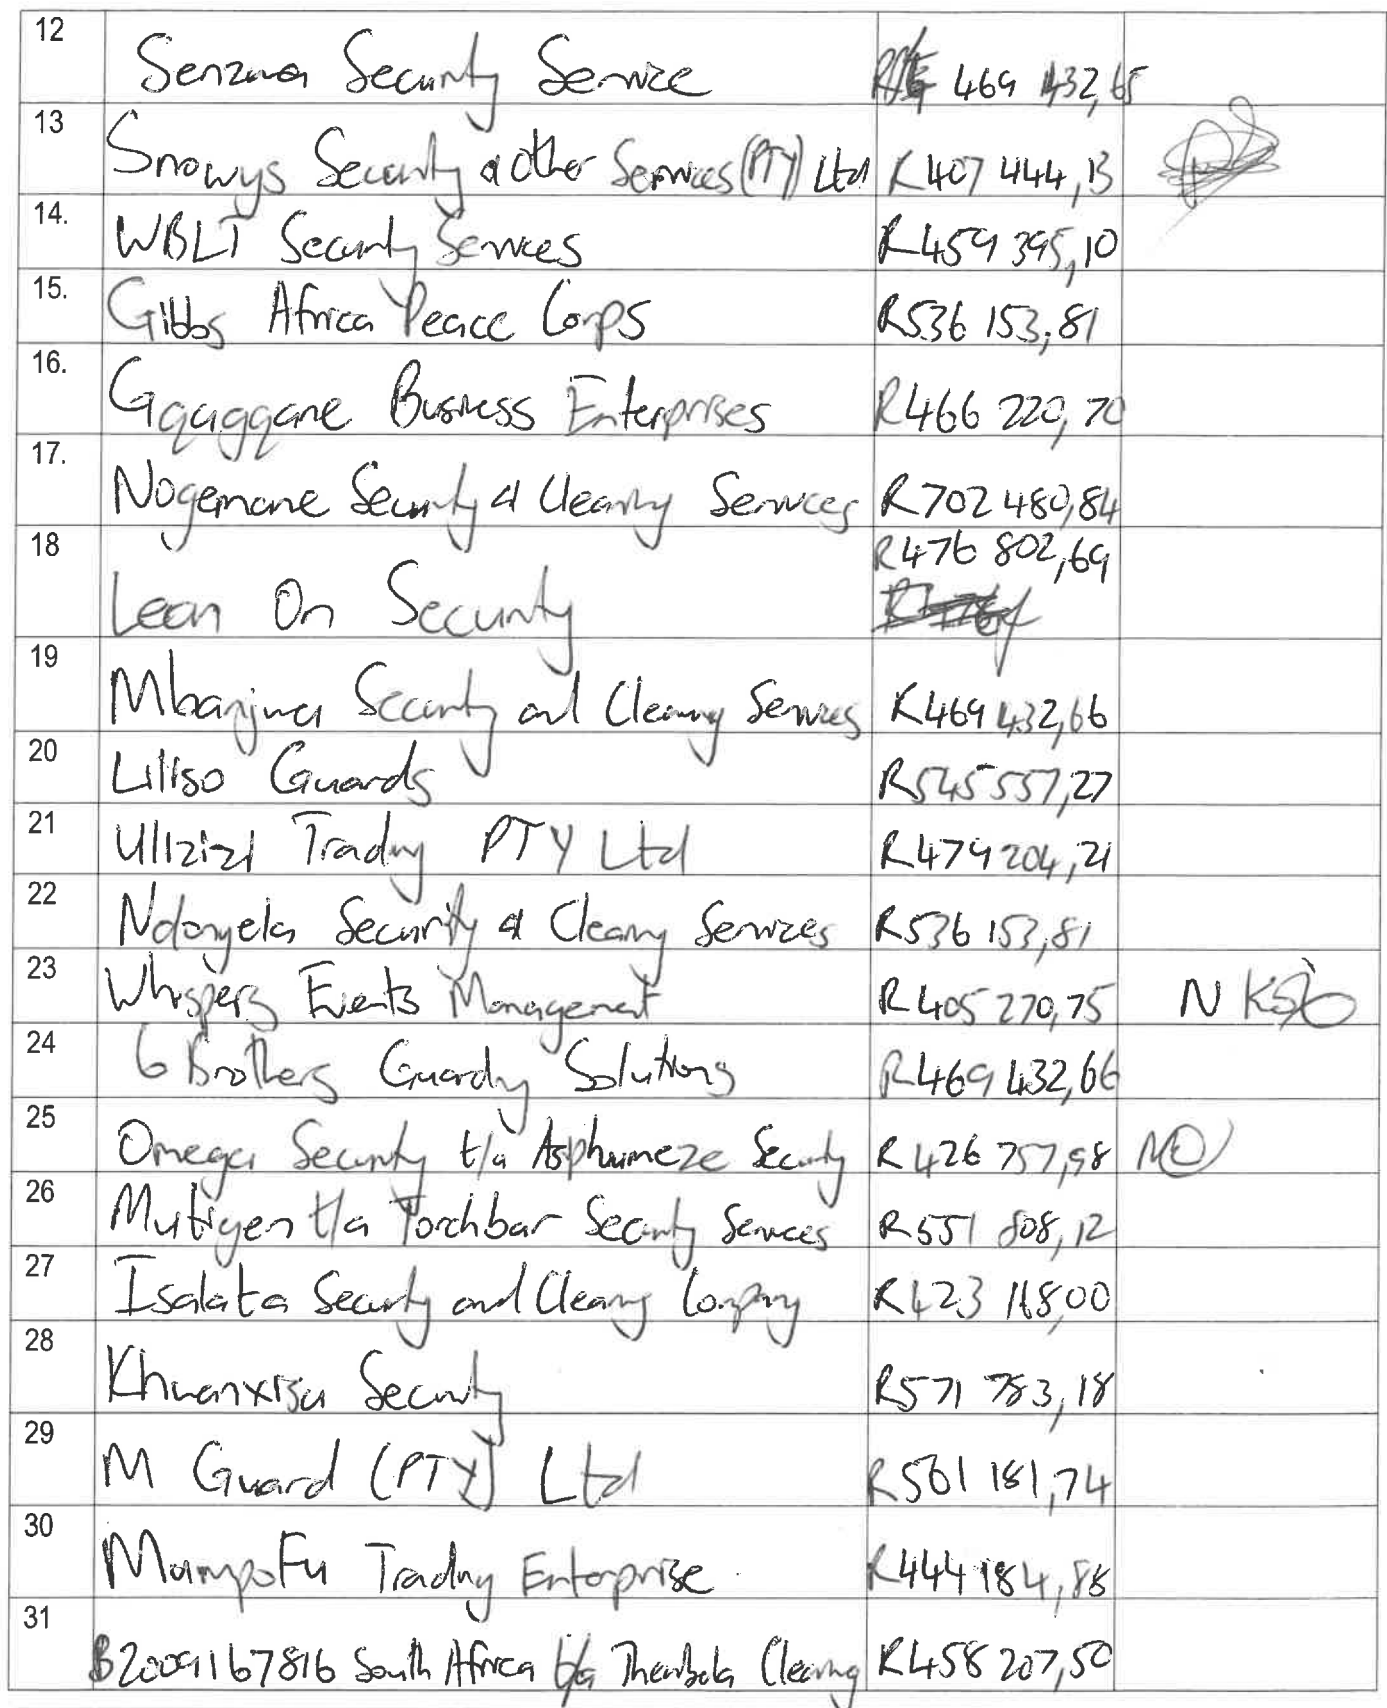 12 Senzwa Security Service R 469 432,65
13 Snowys Security & Other Services (PTY) Ltd R407 444,13
14. WBLT Security Services R459 395,10
15. Gibbs Africa Peace Corps R536 153,81
16. Gqugqane Business Enterprises R466 220,70
17. Nogemane Security & Cleaning Services R702 480,84
18 Lean On Security R476 802,69
19 Mbanjwa Security and Cleaning Services R469 432,66
20 Liliso Guards R545 557,27
21 Ulizizi Trading PTY Ltd R479 204,21
22 Ndonyela Security & Cleaning Services R536 153,81
23 Whispers Events Management R405 270,75
24 6 Brothers Guarding Solutions R469 432,66
25 Omega Security t/a Asphumeze Security R426 757,98
26 Mutigen t/a Torchbar Security Services R551 808,12
27 Isalata Security and Cleaning Company R423 118,00
28 Khwanxisa Security R571 783,18
29 M Guard (PTY) Ltd R561 181,74
30 MampoFu Trading Enterprise R444 184,88
31 B2009167816 South Africa t/a Thembela Cleaning R458 207,50